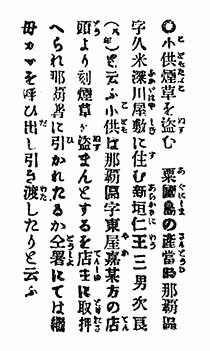 ◎小供煙草を盗む　粟國島の産當時那覇區
字久米深川屋敷に住む新垣仁王三男次良
(九年)と云ふ小供は那覇區字東屋嘉某方の店
頭より刻煙草を盗まんとするを店主に取押
へられ那覇署に引かれたるか仝署にては繼
母カマを呼ひ出し引き渡したりと云ふ